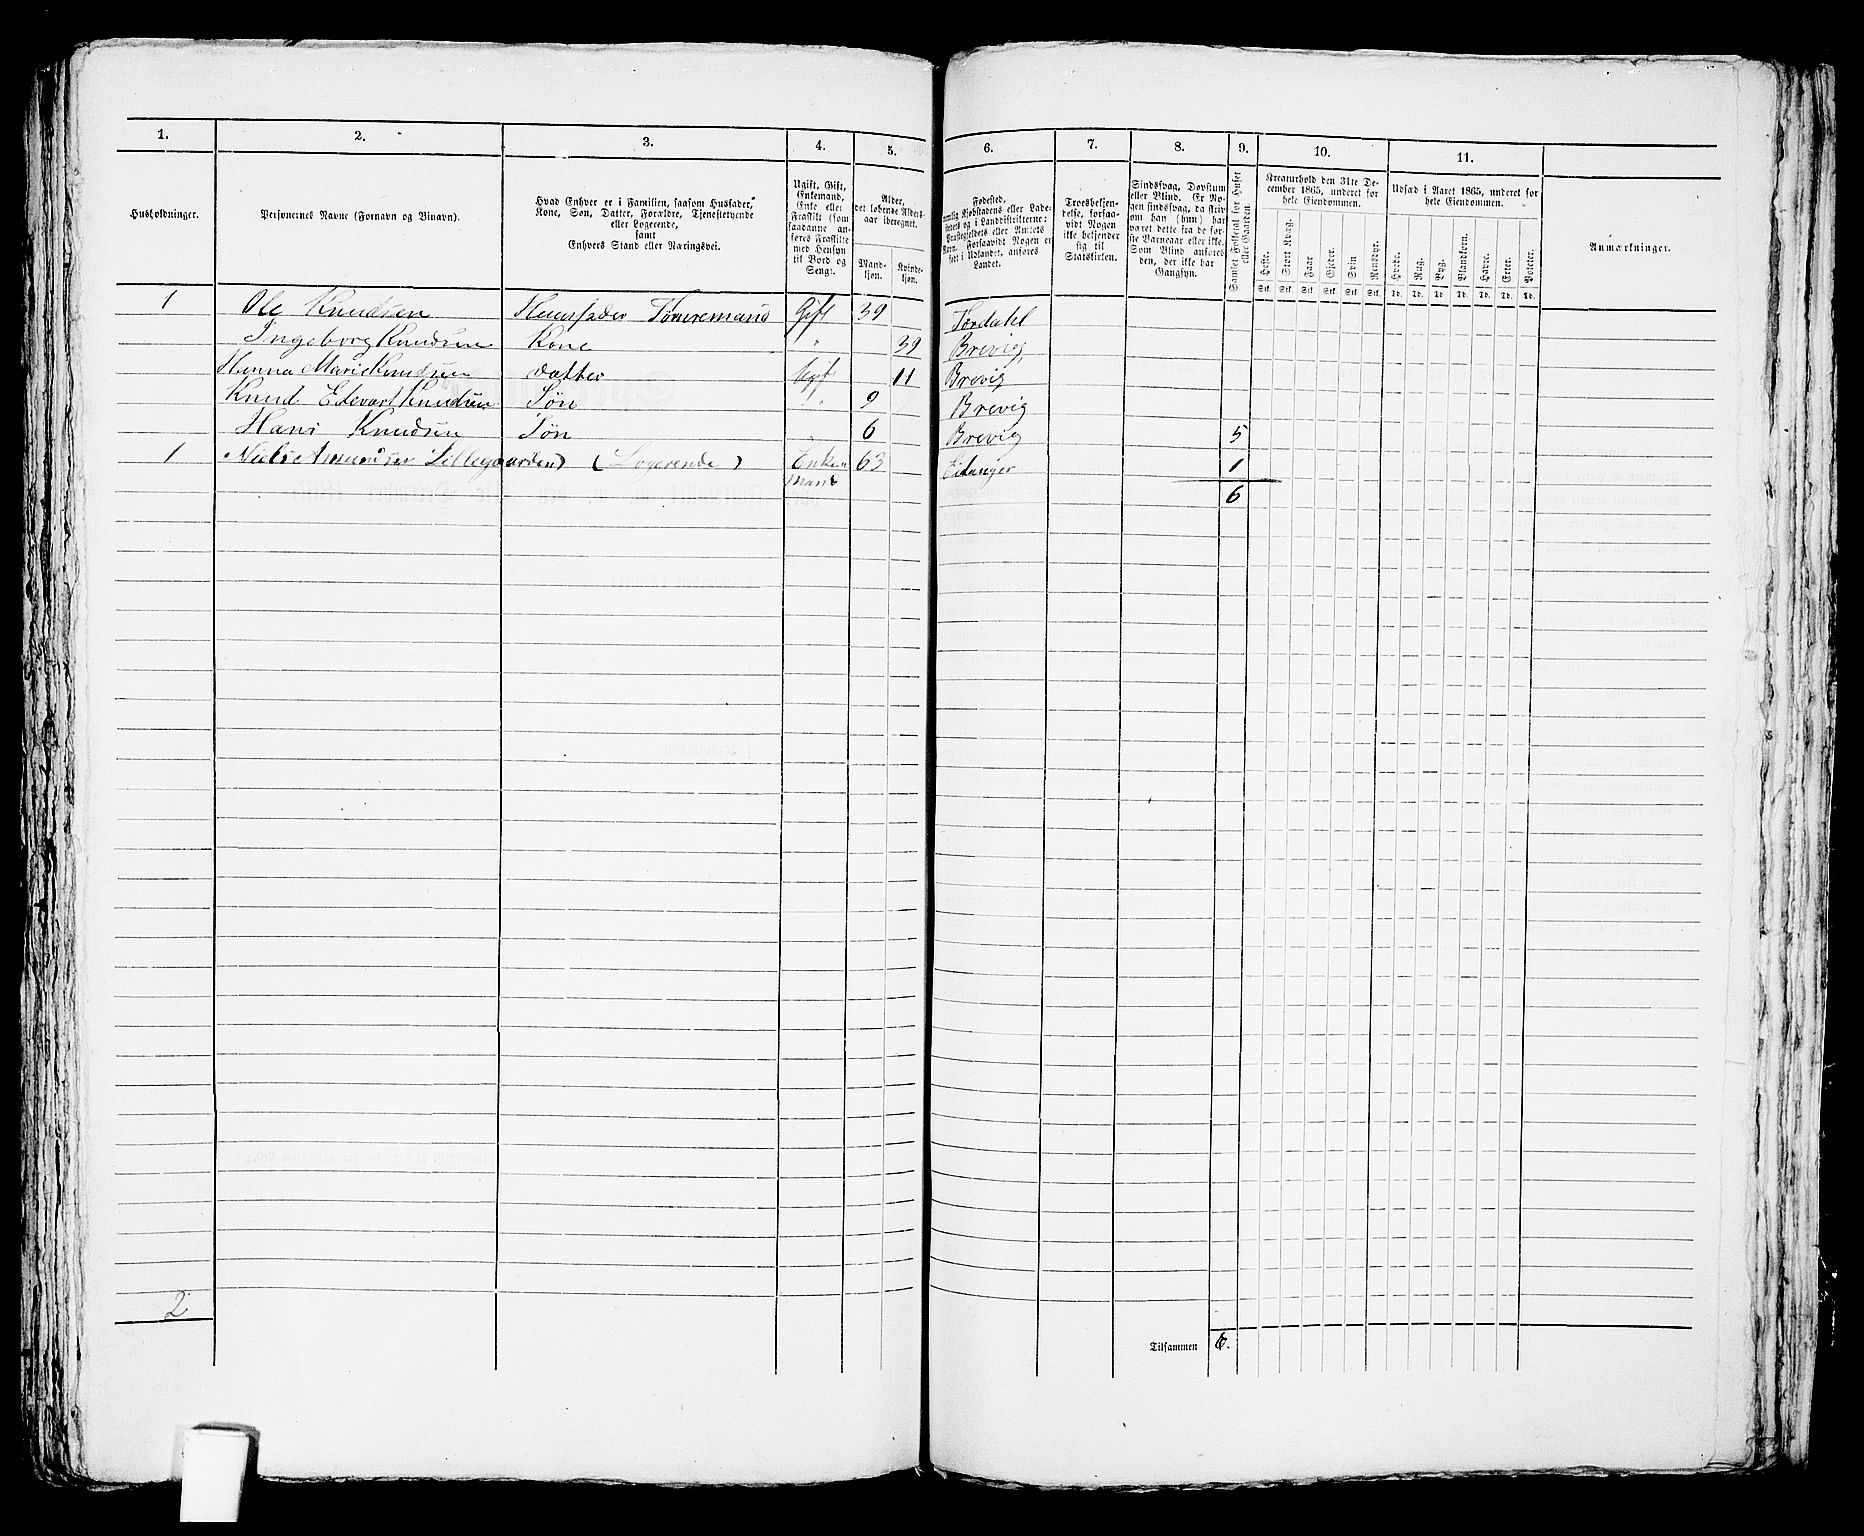 1. 2. 3. 4. 5. 6. 7. 8. 9. 10. 11.
Husholdninger.
Personernes Navne (Fornavn og Binavn).
Hvad Enhver er i Familien, saasom Husfader,
Kone, Søn, Datter, Forældre, Tjenestetyende
eller Logerende,
samt
Enhvers Stand eller Næringsvei.
Ugift, Gift,
Enkemand,
Enke eller
Fraskilt (som
saadanne an-
føres Fraskilte
med Hensyn
til Bord og
Seng).
Alder,
det løbende Alders-
aar iberegnet.
Mand-
kjøn.
Kvinde-
kjøn.
Fødested,
nemlig Kjøbstadens eller Lade-
stedets og i Landdistrikterne:
Præstegjeldets eller Amtets
Navn. Forsaavidt Nogen er
født i Udlandet, anføres
Landet.
Troesbekjen-
delse, forsaa-
vidt Nogen
ikke bekjender
sig til
Statskirken.
Sindssvag, Døvstum
eller Blind. Er No-
gen sindssvag, da skriv
om han (hun) har
været dette fra de før-
ste Barneaar eller ikke.
Som Blind anføres
den, der ikke har
Gangsyn.
Samlet Folketal for Huset
eller Gaarden.
Kreaturhold den 31te De-
cember 1865, underet for
hele Eiendommen.
Heste. Stort Kvæg. Faar Gjeder. Svin Rensdyr.
Stk. Stk. Stk. Stk. Stk. Stk.
Udsæd i Aaret 1865, underet for
hele Eiendommen.
Hvede. Rug. Byg. Blandkorn. Havre. Erter. Poteter.
Td. Td. Td. Td. Td. Td. Td.
Anmærkninger.
1 Ole Knudsen Huusfader Tømremand Gift 39 Tørdahl
Ingeborg Knudsen Kone " 39 Brevig
Hanna Marie Knudsen datter Ugift 11 Brevig
Knud Edevart Knudsen Søn " 9 Brevig
Hans Knudsen Søn 6 Brevig 5
1 Niels Amundsen Lillegaarden) (Logerende) Enke 63 Eidanger 1
Mand 6
2
Tilsammen 6.